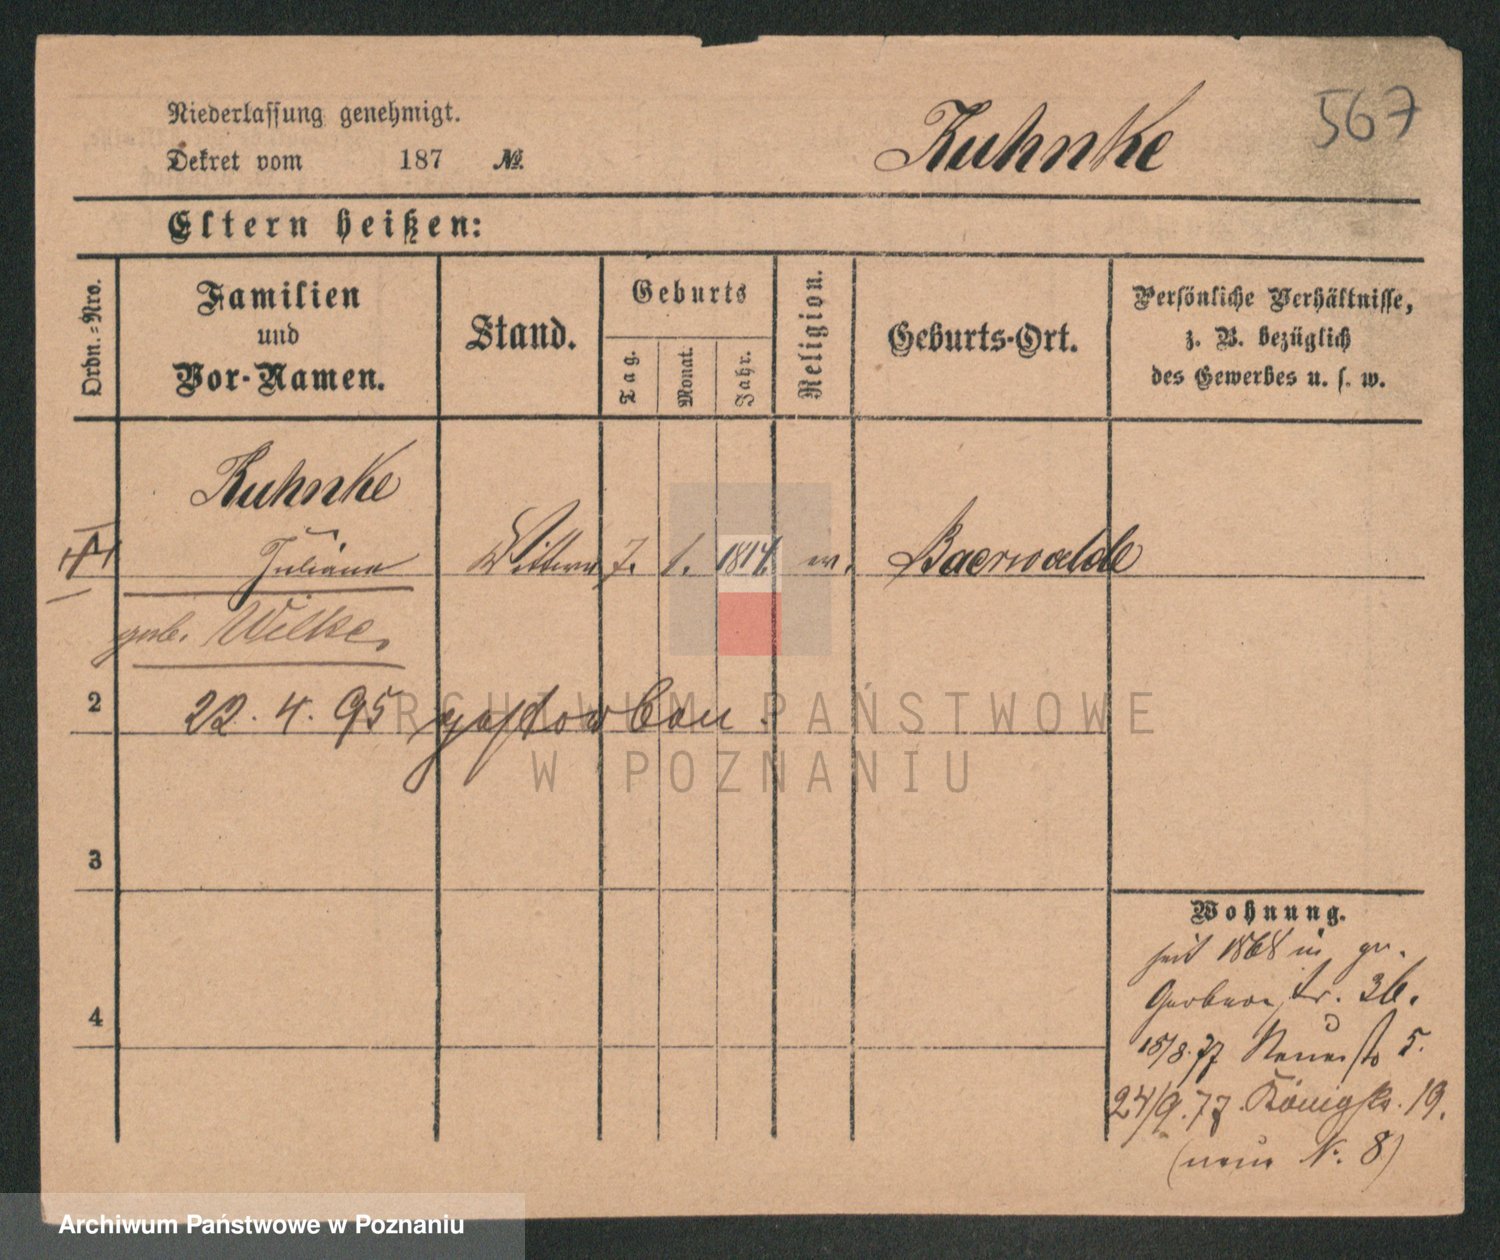 Niederlassung genehmigt.
Dekret vom 187 №.
Kuhnke
567
Eltern heißen:
Ordn.-Nro.
Familien
und
Vor-Namen.
Stand.
Geburts
Tag.
Monat.
Jahr.
Religion.
Geburts-Ort.
Persönliche Verhältnisse,
z. B. bezüglich
des Gewerbes u. s. w.
Kuhnke
Juliana Wittwe 7. 1. 1814. ev. Baerwalde
geb. Wilke
2
22. 4. 95 gestorben.
ARCHIWUM PAŃSTWOWE
W POZNANIU
3
4
Wohnung.
seit 1868 in gr.
Gerberstr. 36.
15/8.77 Neuestr 5.
24/9.77. Königstr. 19.
(neue N. 8)
Archiwum Państwowe w Poznaniu